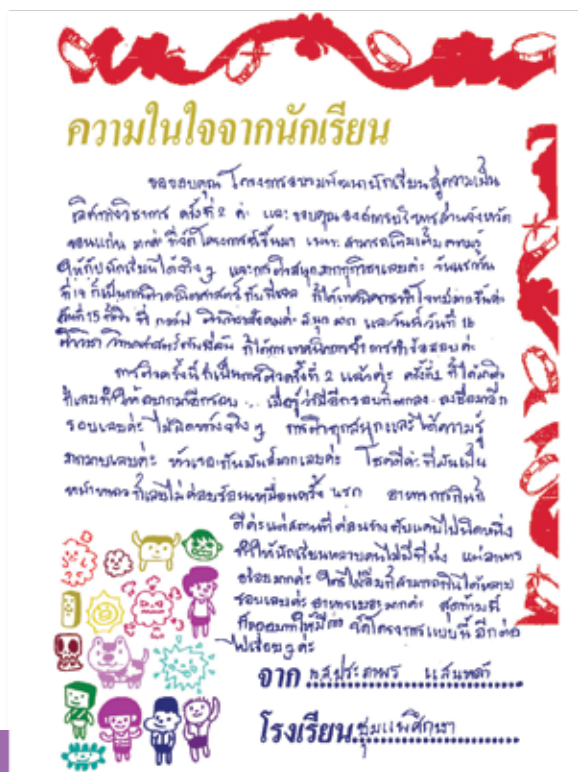 ความในใจจากนักเรียน
ขอขอบคุณ โครงการอบรมพัฒนานักเรียนสู่ความเป็น
เลิศทางวิชาการ ครั้งที่ 2 ค่ะ และ ขอบคุณองค์การบริหารส่วนจังหวัด
ขอนแก่น มากค่ะ ที่จัดโครงการนี้ขึ้นมา เพราะสามารถเติมเต็มความรู้
ให้กับนักเรียนได้จริงๆ และการติวสนุกมากทุกวิชาเลยค่ะ วันแรกวัน
ที่ 14 ก็เป็นการติวคณิตศาสตร์ กับพี่ ก็ได้เทคนิคการทำโจทย์
วันที่ 15 ที่ กอล์ฟ วิชาสังคมค่ะ สนุก มาก และวันนี้วันที่ 16
ติววิชา วิทยาศาสตร์กับพี่ ก็ได้การเทคนิคการจำ การทำข้อสอบ ค่ะ
การติวครั้งนี้ก็เป็นการติวครั้งที่ 2 แล้วค่ะ ครั้งที่1 ก็ได้มาติว
ก็เลยทำให้อยากมาอีกรอบ... เมื่อรู้ว่ามีอีกรอบก็ตกลง ลงชื่อมาอีก
รอบเลยค่ะ ไม่ผิดหวังจริงๆ การติวสนุกและได้ความรู้
มากมายเลยค่ะ หัวเราะกันมันส์มากเลยค่ะ โชคดีค่ะ ที่มันเป็น
หน้าหนาว ก็เลยไม่ค่อยร้อนเหมือนครั้ง แรก อาหารการกินก็
ดีค่ะแต่สถานที่ค่อนข้างคับแคบไปนิดหนึ่ง
ทำให้นักเรียนหลายคนไม่มีที่นั่ง แต่อาหาร
อร่อยมากค่ะ สามารถกินได้หลาย
รอบเลยค่ะ อาหารเยอะมากค่ะ สุดท้ายนี้
ก็อยากให้มีการ จัดโครงการแบบนี้ อีกต่อ
ไปเรื่อยๆ ค่ะ
จาก น.ส.ประภาพร แสนหล้า
โรงเรียน ชุมแพศึกษา